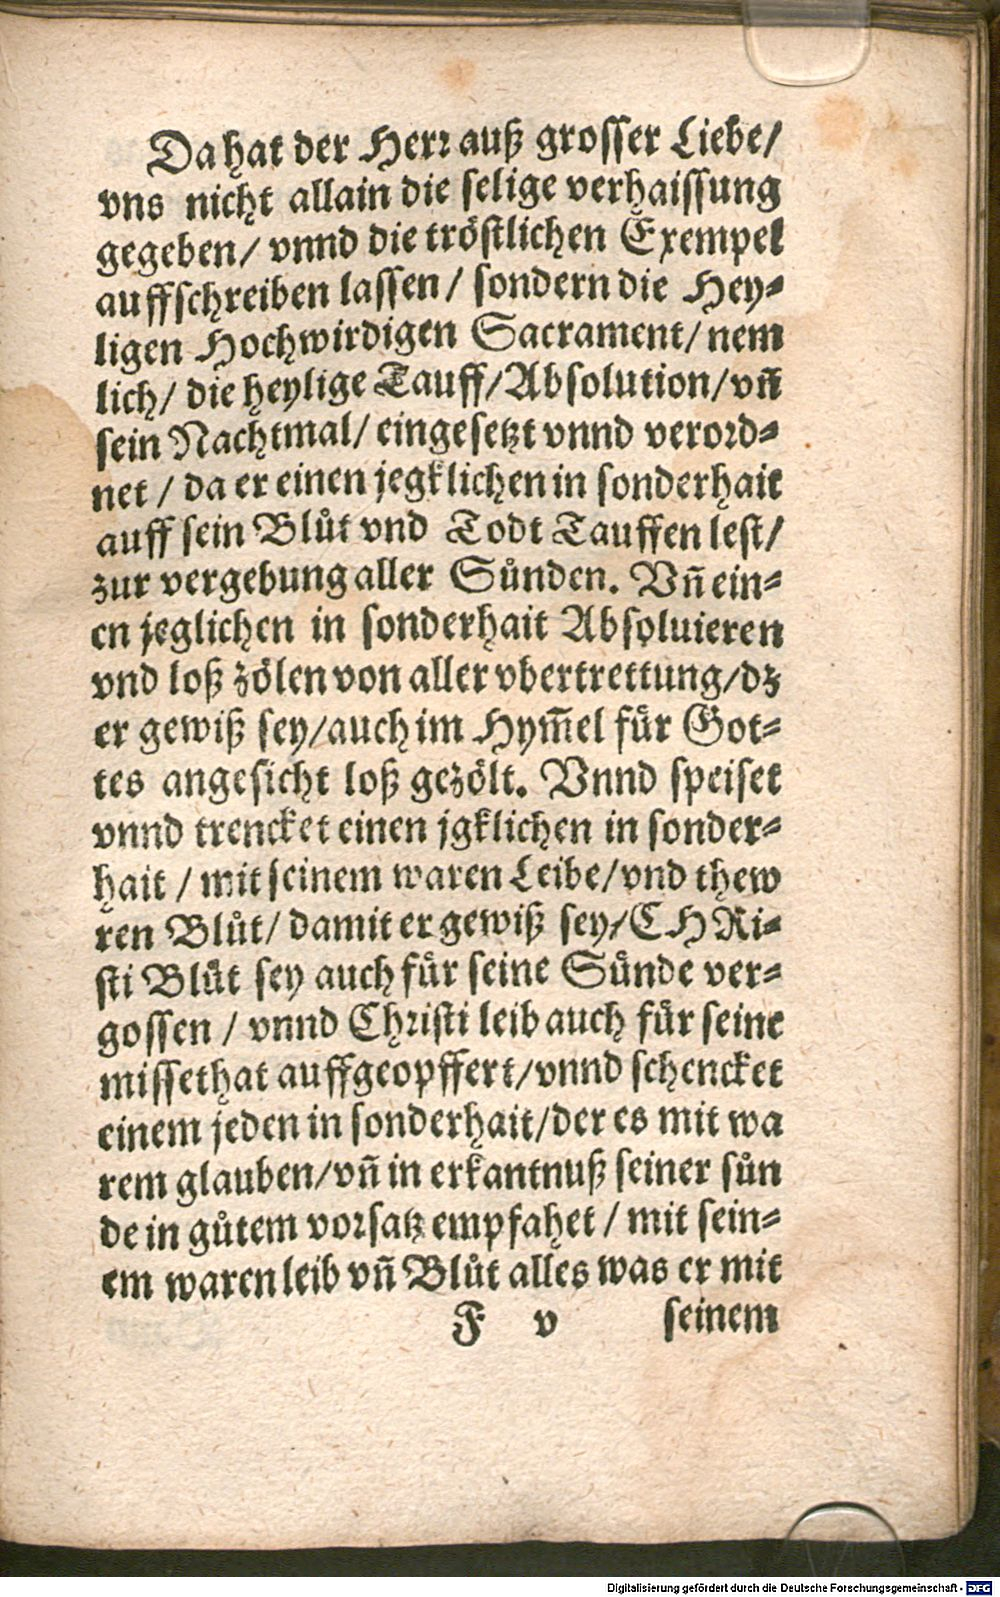 Da hat der Herr auß grosser Liebe/
vns nicht allain die selige verhaissung
gegeben/ vnnd die tröstlichen Exempel
auffschreiben lassen/ sondern die Hey-
ligen Hochwirdigen Sacrament/ nem
lich/ die heylige Tauff/ Absolution/ vñ
sein Nachtmal/ eingesetzt vnnd verord-
net / da er einen jegklichen in sonderhait
auff sein Blůt vnd Todt Tauffen lest/
zur vergebung aller Sůnden. Vñ ein-
en jeglichen in sonderhait Absoluieren
vnd loß zölen von aller vbertrettung/ dz
er gewiß sey/ auch im Hym̄el fůr Got-
tes angesicht loß gezölt. Vnnd speiset
vnnd trencket einen jgklichen in sonder-
hait / mit seinem waren Leibe/ vnd thew
ren Blůt/ damit er gewiß sey/ CHRi-
sti Blůt sey auch fůr seine Sůnde ver-
gossen / vnnd Christi leib auch fůr seine
missethat auffgeopffert/ vnnd schencket
einem jeden in sonderhait/ der es mit wa
rem glauben/ vñ in erkantnuß seiner sůn
de in gůtem vorsatz empfahet / mit sein-
em waren leib vñ Blůt alles was er mit
F v seinem
Digitalisierung gefördert durch die Deutsche Forschungsgemeinschaft - DFG